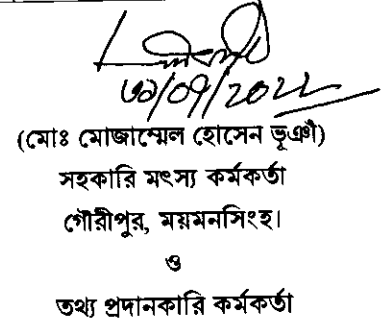 ৩১/০৭/2022
(মোঃ মোজাম্মেল হোসেন ভূঞাঁ)
সহকারি মৎস্য কর্মকর্তা
গৌরীপুর, ময়মনসিংহ।
ও
তথ্য প্রদানকারি কর্মকর্তা